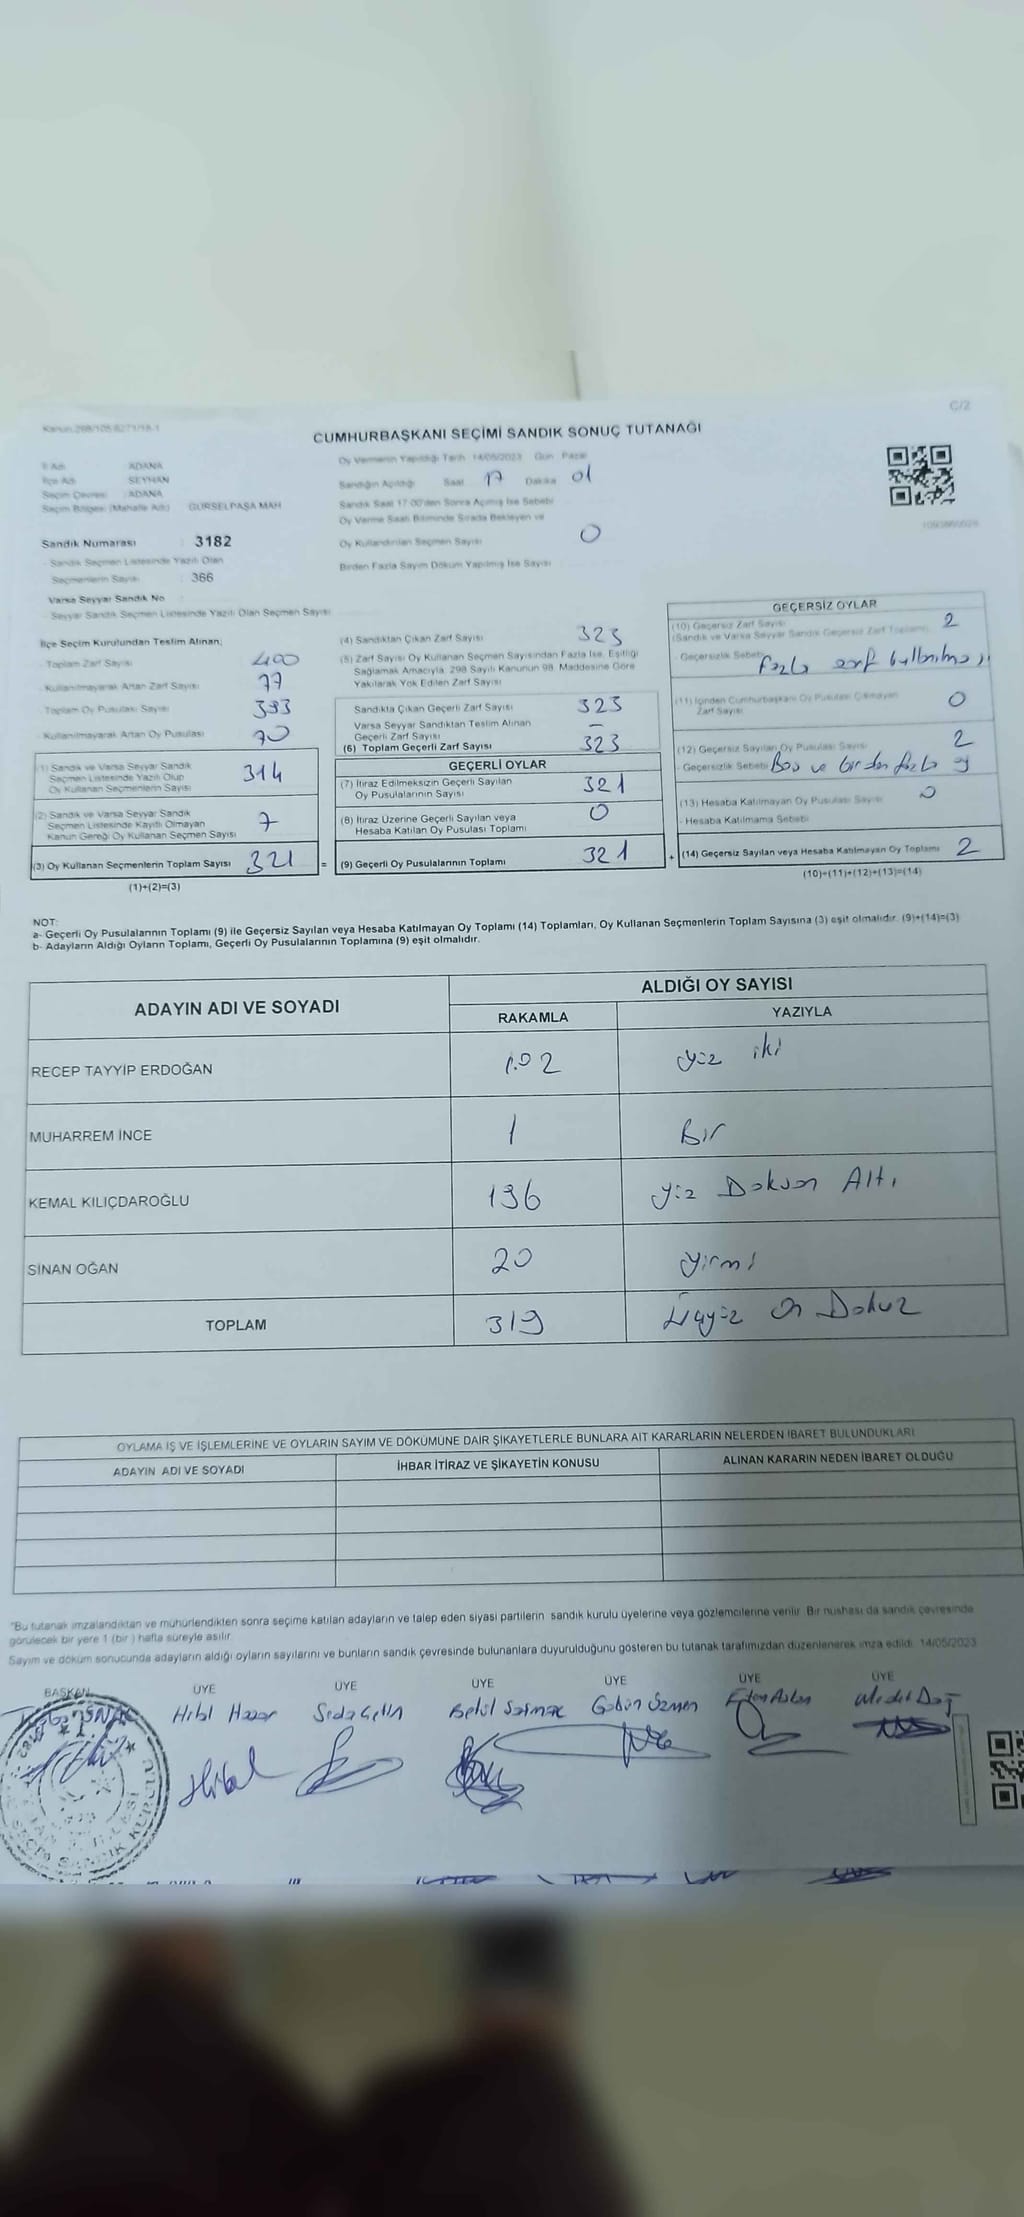 C/2
CUMHURBAŞKANI SEÇİMİ SANDIK SONUÇ TUTANAĞI
İl Adı ADANA
İlçe Adı SEYHAN
Seçim Çevresi : ADANA
Seçim Bölgesi (Mahalle Adı) GÜRSELPAŞA MAH
Sandık Numarası : 3182
- Sandık Seçmen Listesinde Yazılı Olan
Seçmenlerin Sayısı : 366
Varsa Seyyar Sandık No
- Seyyar Sandık Seçmen Listesinde Yazılı Olan Seçmen Sayısı
Oy Vermenin Yapıldığı Tarih 14/05/2023 Gün Pazar
Sandığın Açıldığı Saat 17 Dakika 01
Sandık Saat 17:00'den Sonra Açılmış İse Sebebi
Oy Verme Saati Bitiminde Sırada Bekleyen ve
Oy Kullandırılan Seçmen Sayısı 0
Birden Fazla Sayım Döküm Yapılmış İse Sayısı
İlçe Seçim Kurulundan Teslim Alınan;
- Toplam Zarf Sayısı 400
- Kullanılmayarak Artan Zarf Sayısı 77
- Toplam Oy Pusulası Sayısı 393
- Kullanılmayarak Artan Oy Pusulası 70
(1) Sandık ve Varsa Seyyar Sandık
Seçmen Listesinde Yazılı Olup
Oy Kullanan Seçmenlerin Sayısı 314
(2) Sandık ve Varsa Seyyar Sandık
Seçmen Listesinde Kayıtlı Olmayan
Kanun Gereği Oy Kullanan Seçmen Sayısı 7
(3) Oy Kullanan Seçmenlerin Toplam Sayısı 321 =
(1)+(2)=(3)
(4) Sandıktan Çıkan Zarf Sayısı 323
(5) Zarf Sayısı Oy Kullanan Seçmen Sayısından Fazla İse, Eşitliği
Sağlamak Amacıyla, 298 Sayılı Kanunun 98. Maddesine Göre
Yakılarak Yok Edilen Zarf Sayısı
Sandıkta Çıkan Geçerli Zarf Sayısı 323
Varsa Seyyar Sandıktan Teslim Alınan
Geçerli Zarf Sayısı –
(6) Toplam Geçerli Zarf Sayısı 323
GEÇERLİ OYLAR
(7) İtiraz Edilmeksizin Geçerli Sayılan
Oy Pusulalarının Sayısı 321
(8) İtiraz Üzerine Geçerli Sayılan veya
Hesaba Katılan Oy Pusulası Toplamı 0
(9) Geçerli Oy Pusulalarının Toplamı 321 +
GEÇERSİZ OYLAR
(10) Geçersiz Zarf Sayısı
(Sandık ve Varsa Seyyar Sandık Geçersiz Zarf Toplamı) 2
- Geçersizlik Sebebi fazla zarf
(11) İçinden Cumhurbaşkanı Oy Pusulası Çıkmayan
Zarf Sayısı 0
(12) Geçersiz Sayılan Oy Pusulası Sayısı 2
- Geçersizlik Sebebi Boş ve birden fazla oy
(13) Hesaba Katılmayan Oy Pusulası Sayısı 0
- Hesaba Katılmama Sebebi
(14) Geçersiz Sayılan veya Hesaba Katılmayan Oy Toplamı 2
(10)+(11)+(12)+(13)=(14)
NOT:
a- Geçerli Oy Pusulalarının Toplamı (9) ile Geçersiz Sayılan veya Hesaba Katılmayan Oy Toplamı (14) Toplamları, Oy Kullanan Seçmenlerin Toplam Sayısına (3) eşit olmalıdır. (9)+(14)=(3)
b- Adayların Aldığı Oyların Toplamı, Geçerli Oy Pusulalarının Toplamına (9) eşit olmalıdır.
ADAYIN ADI VE SOYADI
ALDIĞI OY SAYISI
RAKAMLA YAZIYLA
RECEP TAYYİP ERDOĞAN 102 yüz iki
MUHARREM İNCE 1 Bir
KEMAL KILIÇDAROĞLU 196 yüz Doksan Altı
SİNAN OĞAN 20 yirmi
TOPLAM 319 Üçyüz On Dokuz
OYLAMA İŞ VE İŞLEMLERİNE VE OYLARIN SAYIM VE DÖKÜMÜNE DAİR ŞİKAYETLERLE BUNLARA AİT KARARLARIN NELERDEN İBARET BULUNDUKLARI
ADAYIN ADI VE SOYADI İHBAR İTİRAZ VE ŞİKAYETİN KONUSU ALINAN KARARIN NEDEN İBARET OLDUĞU
"Bu tutanak imzalandıktan ve mühürlendikten sonra seçime katılan adayların ve talep eden siyasi partilerin sandık kurulu üyelerine veya gözlemcilerine verilir. Bir nüshası da sandık çevresinde
görülecek bir yere 1 (bir) hafta süreyle asılır.
Sayım ve döküm sonucunda adayların aldığı oyların sayılarını ve bunların sandık çevresinde bulunanlara duyurulduğunu gösteren bu tutanak tarafımızdan düzenlenerek imza edildi. 14/05/2023
BAŞKAN ÜYE ÜYE ÜYE ÜYE ÜYE ÜYE
Seda Çetin Betül
Hilal